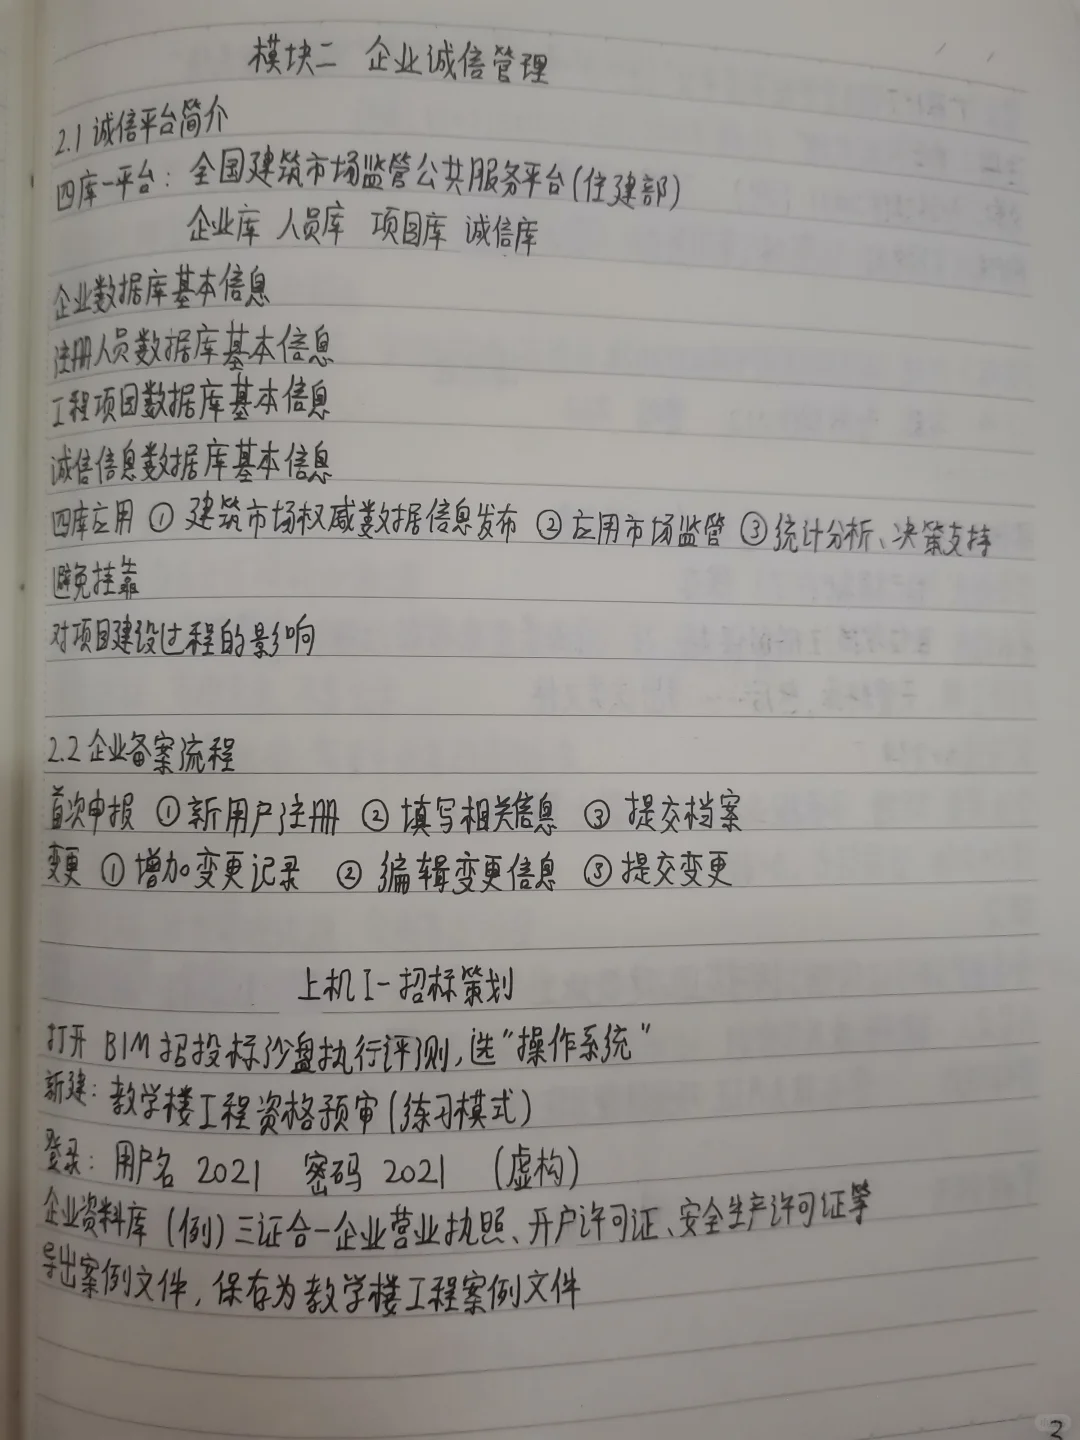 模块二 企业诚信管理
2.1 诚信平台简介
四库一平台：全国建筑市场监管公共服务平台(住建部)
企业库 人员库 项目库 诚信库
企业数据库基本信息
注册人员数据库基本信息
工程项目数据库基本信息
诚信信息数据库基本信息
四库应用 ① 建筑市场权威数据信息发布 ② 应用市场监管 ③ 统计分析、决策支持
避免挂靠
对项目建设过程的影响
2.2 企业备案流程
首次申报 ① 新用户注册 ② 填写相关信息 ③ 提交档案
变更 ① 增加变更记录 ② 编辑变更信息 ③ 提交变更
上机1-招标策划
打开 BIM招投标沙盘执行评测，选“操作系统”
新建：教学楼工程资格预审(练习模式)
登录：用户名 2021 密码 2021 (虚构)
企业资料库 (例) 三证合一企业营业执照、开户许可证、安全生产许可证等
导出案例文件，保存为教学楼工程案例文件
2